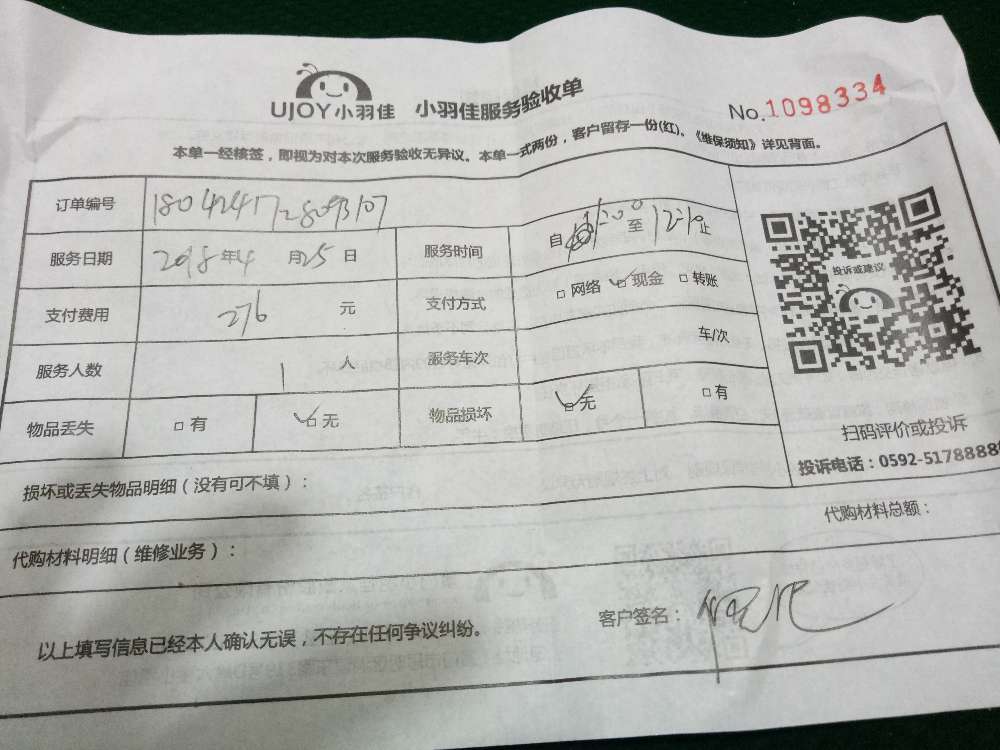 UJOY小羽佳 小羽佳服务验收单
No.1098334
本单一经核签，即视为对本次服务验收无异议。本单一式两份，客户留存一份(红)。《维保须知》详见背面。
订单编号
服务日期 2018年4月25日 服务时间 自 至 12:10止
支付费用 276 元 支付方式 □网络 ☑现金 □转账
服务人数 1 人 服务车次 车/次
物品丢失 □有 ☑无 物品损坏 ☑无 □有
投诉或建议
扫码评价或投诉
投诉电话：0592-5178888
损坏或丢失物品明细（没有可不填）：
代购材料明细（维修业务）： 代购材料总额：
以上填写信息已经本人确认无误，不存在任何争议纠纷。 客户签名：